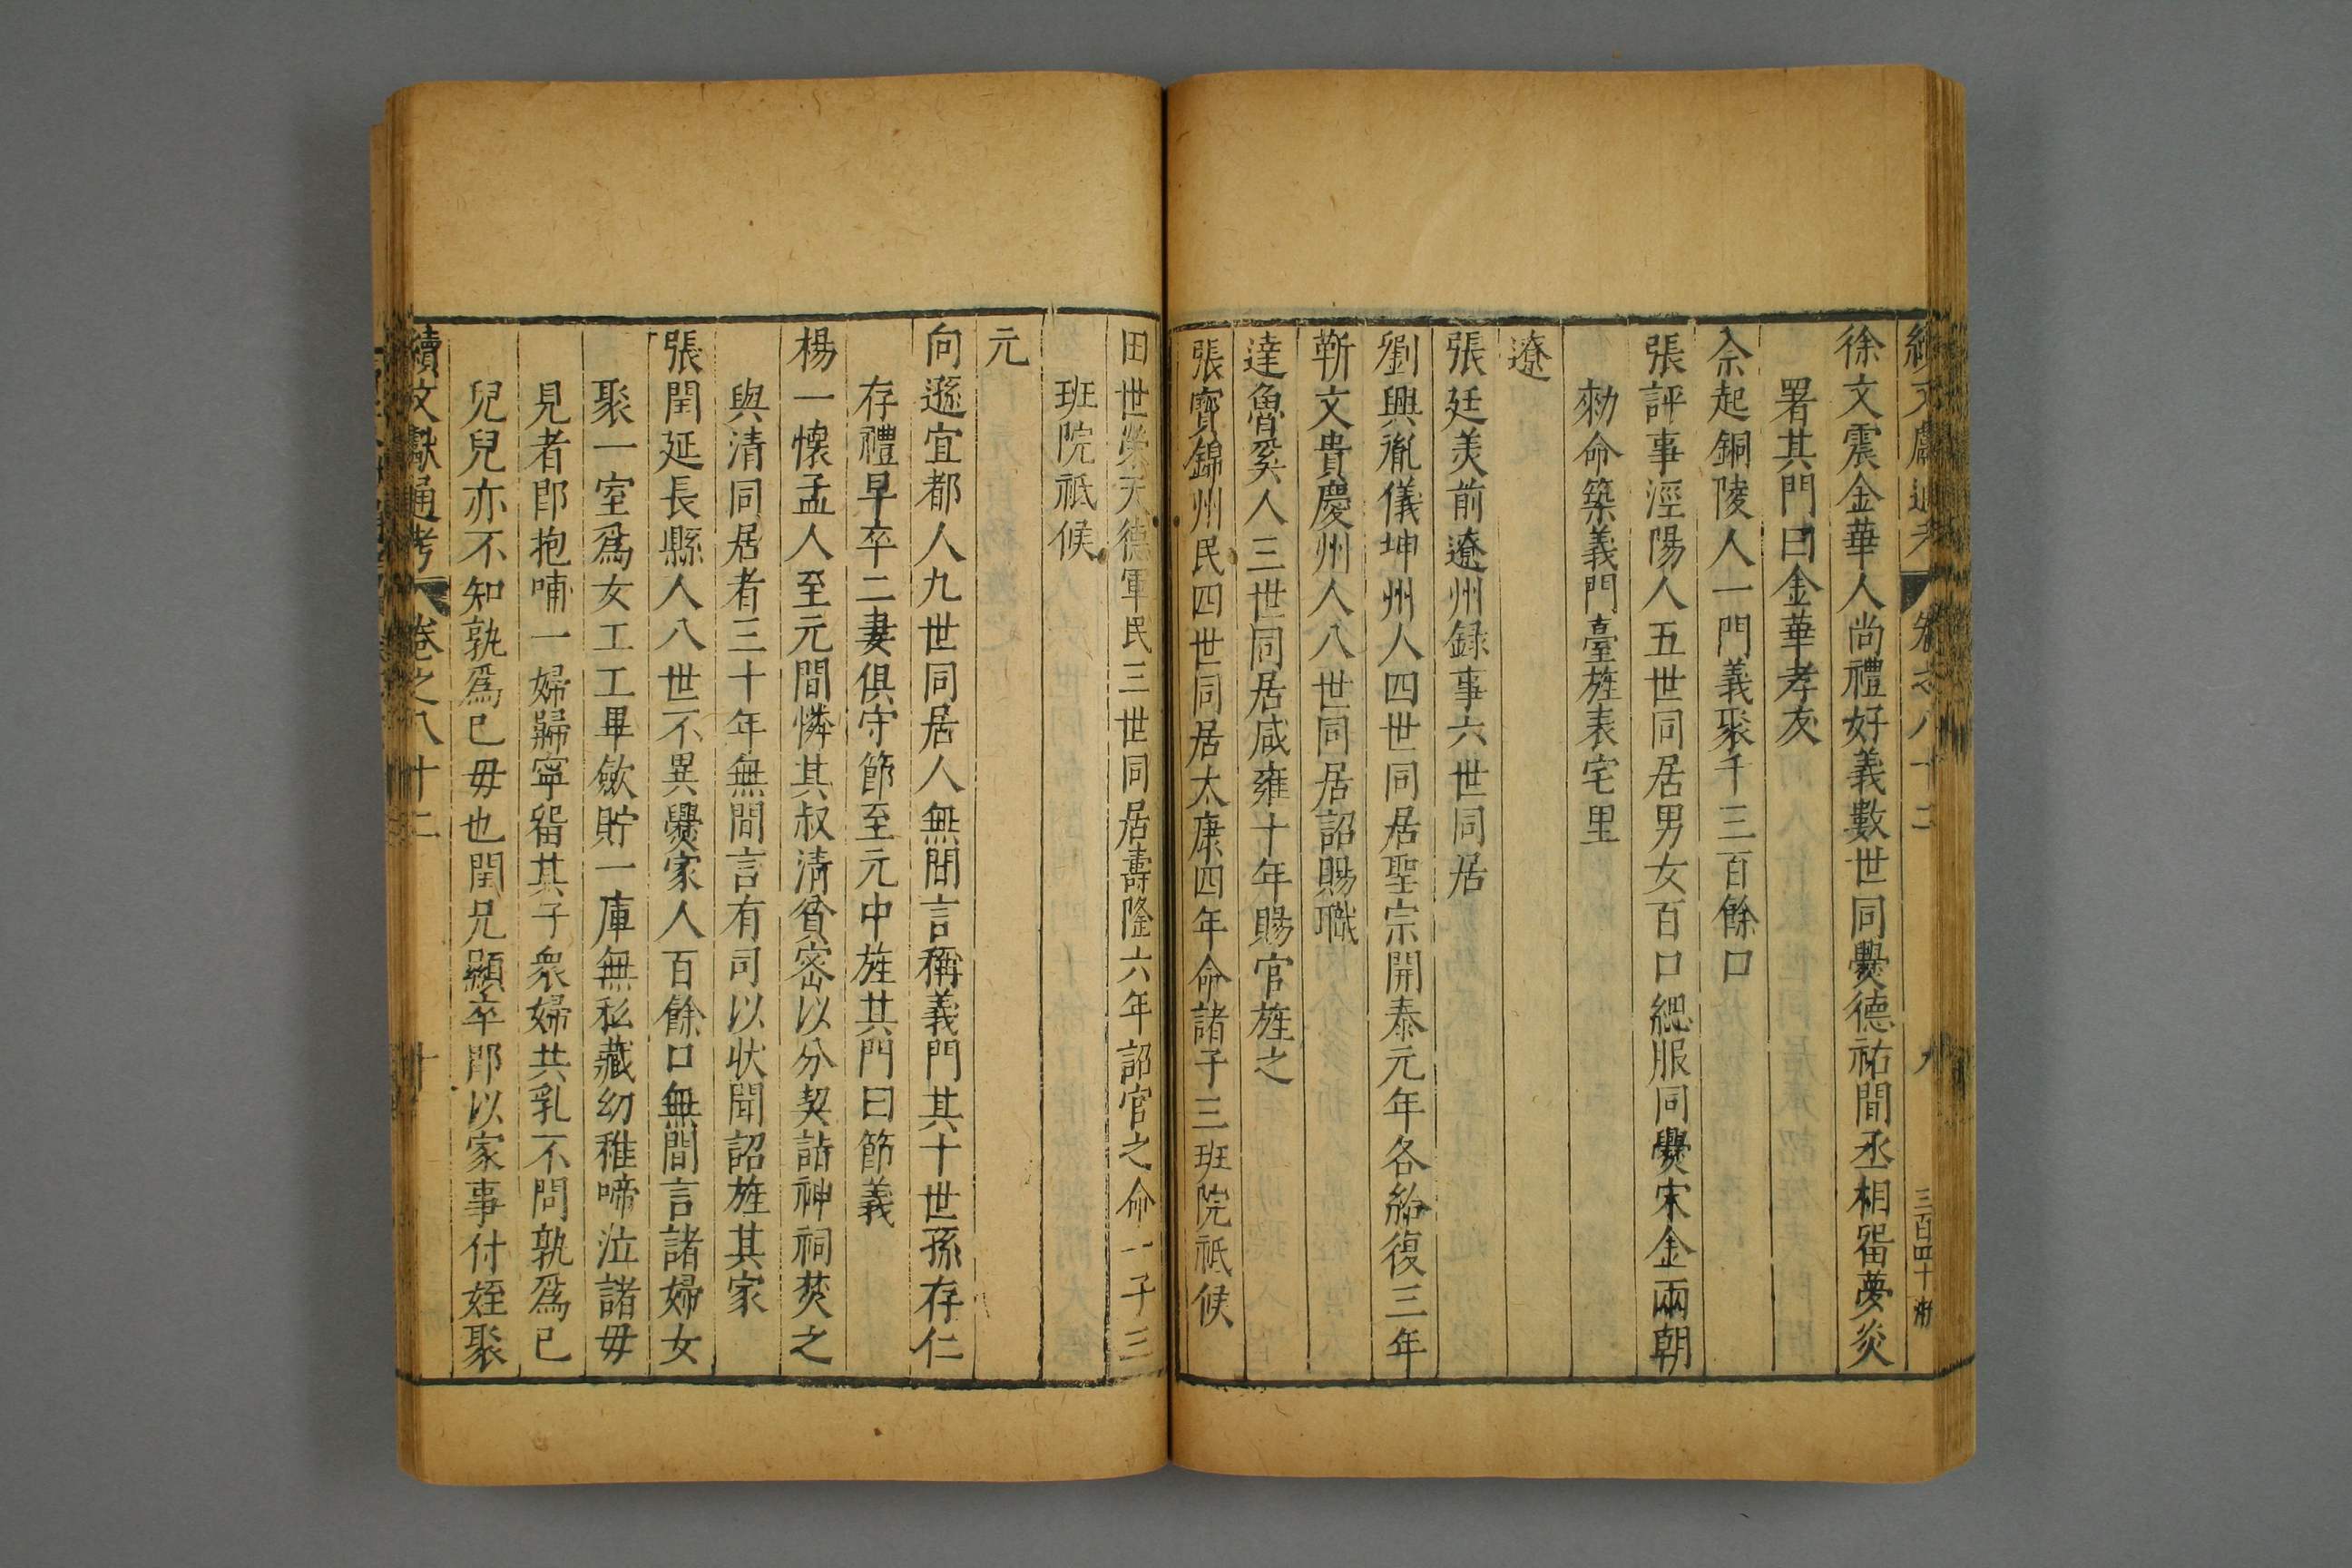 續文獻通考 卷之八十二 九 三百四十
徐文震金華人尚禮好義數世同爨德祐間丞相留夢炎
署其門曰金華孝友
佘起銅陵人一門義聚千三百餘口
張評事涇陽人五世同居男女百口緦服同爨宋金兩朝
勑命築義門臺旌表宅里
遼
張廷美前遼州録事六世同居
劉興胤儀坤州人四世同居聖宗開泰元年各給復三年
靳文貴慶州人八世同居詔賜職
達魯奚人三世同居咸雍十年賜官旌之
張寶錦州民四世同居太康四年命諸子三班院祗候
田世榮天德軍民三世同居壽隆六年詔官之命一子三
班院祗候
元
向遜宜都人九世同居人無間言稱義門其十世孫存仁
存禮早卒二妻俱守節至元中旌其門曰節義
楊一懷孟人至元間憐其叔清貧密以分契詣神祠焚之
與清同居者三十年無間言有司以狀聞詔旌其家
張閏延長縣人八世不異爨家人百餘口無間言諸婦女
聚一室爲女工工畢斂貯一庫無私藏幼稚啼泣諸毋
見者即抱哺一婦歸寧留其子衆婦共乳不問孰爲已
兒兒亦不知孰爲已毋也閏兄顯卒即以家事付姪聚
續文獻通考 卷之八十二 十